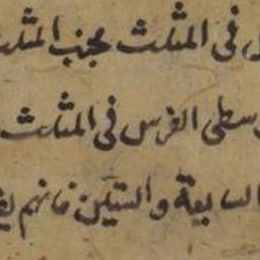 فى المثلث مجنب المثلث
وسطى الفرس فى المثلث
السابعة والستين فانهم